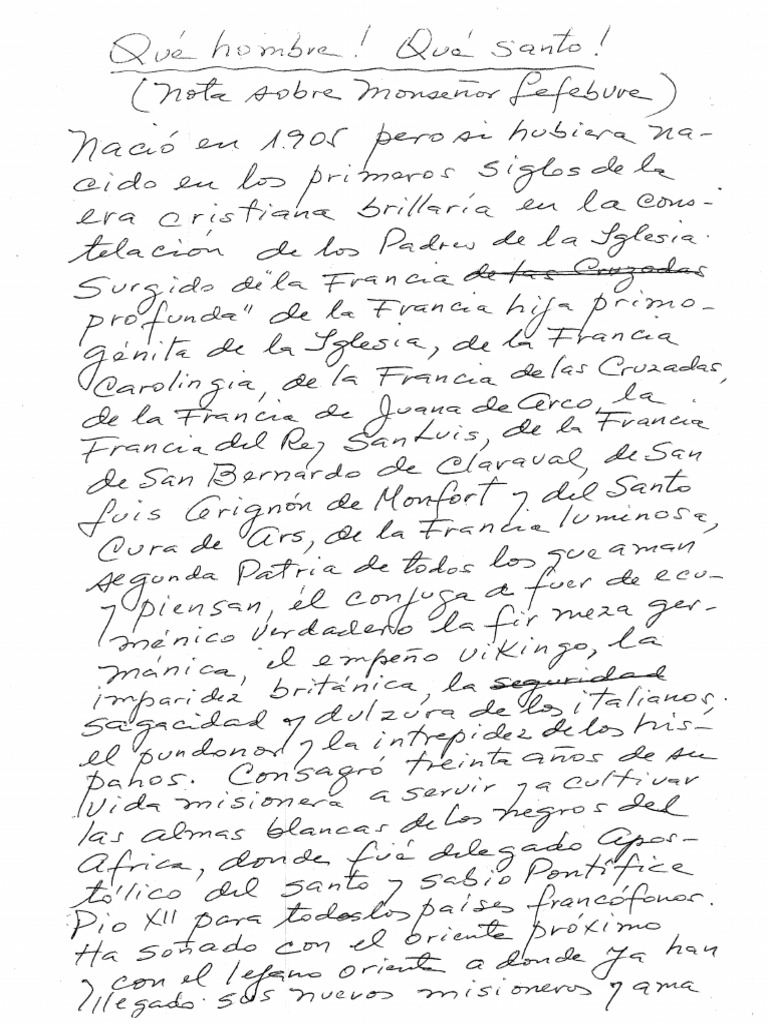 Qué hombre! Qué santo!
(Nota sobre Monseñor Lefebvre)
Nació en 1.905 pero si hubiera na-
cido en los primeros siglos de la
era cristiana brillaría en la cons-
telación de los Padres de la Iglesia.
Surgido de "la Francia de las Cruzadas
profunda" de la Francia hija primo-
génita de la Iglesia, de la Francia
Carolingia, de la Francia de las Cruzadas,
de la Francia de Juana de Arco, la
Francia del Rey San Luis, de la Francia
de San Bernardo de Claraval, de San
Luis Grignón de Monfort y del Santo
Cura de Ars, de la Francia luminosa,
segunda Patria de todos los que aman
y piensan, él conjuga a fuer de ecu-
ménico verdadero la firmeza ger-
mánica, el empeño vikingo, la
imparidez británica, la seguridad
sagacidad y dulzura de los italianos,
el pundonor y la intrepidez de los his-
panos. Consagró treinta años de su
vida misionera a servir y a cultivar
las almas blancas de los negros del
Africa, donde fué delegado Apos-
tólico del santo y sabio Pontífice
Pio XII para todos los países francófonos.
Ha soñado con el oriente próximo
y con el lejano oriente a donde ya han
llegado sus nuevos misioneros y ama